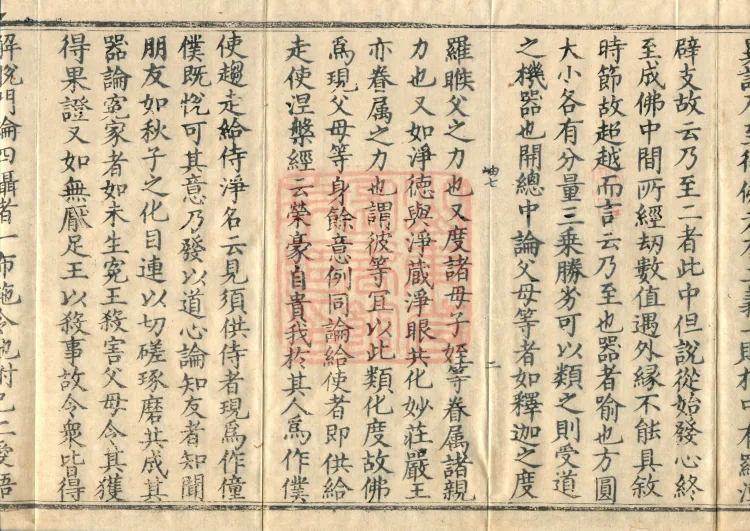 辟支故云乃至二者此中但說從始發心終
至成佛中間所經劫數值遇外緣不能具敘
時節故超越而言云乃至也器者喻也方圓
大小各有分量三乘勝劣可以類之則受道
之機器也開總中論父母等者如釋迦之度
岫七
二
羅睺父之力也又度諸母子姪等眷属諸親
力也又如淨德與淨藏淨眼共化妙莊嚴王
亦眷属之力也謂彼等宜以此類化度故佛
爲現父母等身餘意例同論給使者即供給
走使涅槃經云榮豪自貴我於其人爲作僕
使趨走給侍淨名云見須供侍者現爲作僮
僕既悅可其意乃發以道心論知友者知聞
朋友如秋子之化目連以切磋琢磨共成其
器論冤家者如未生冤王殺害父母令其獲
得果證又如無厭足王以殺事故令衆皆得
解脫門論四攝者一布施令也附己二愛語